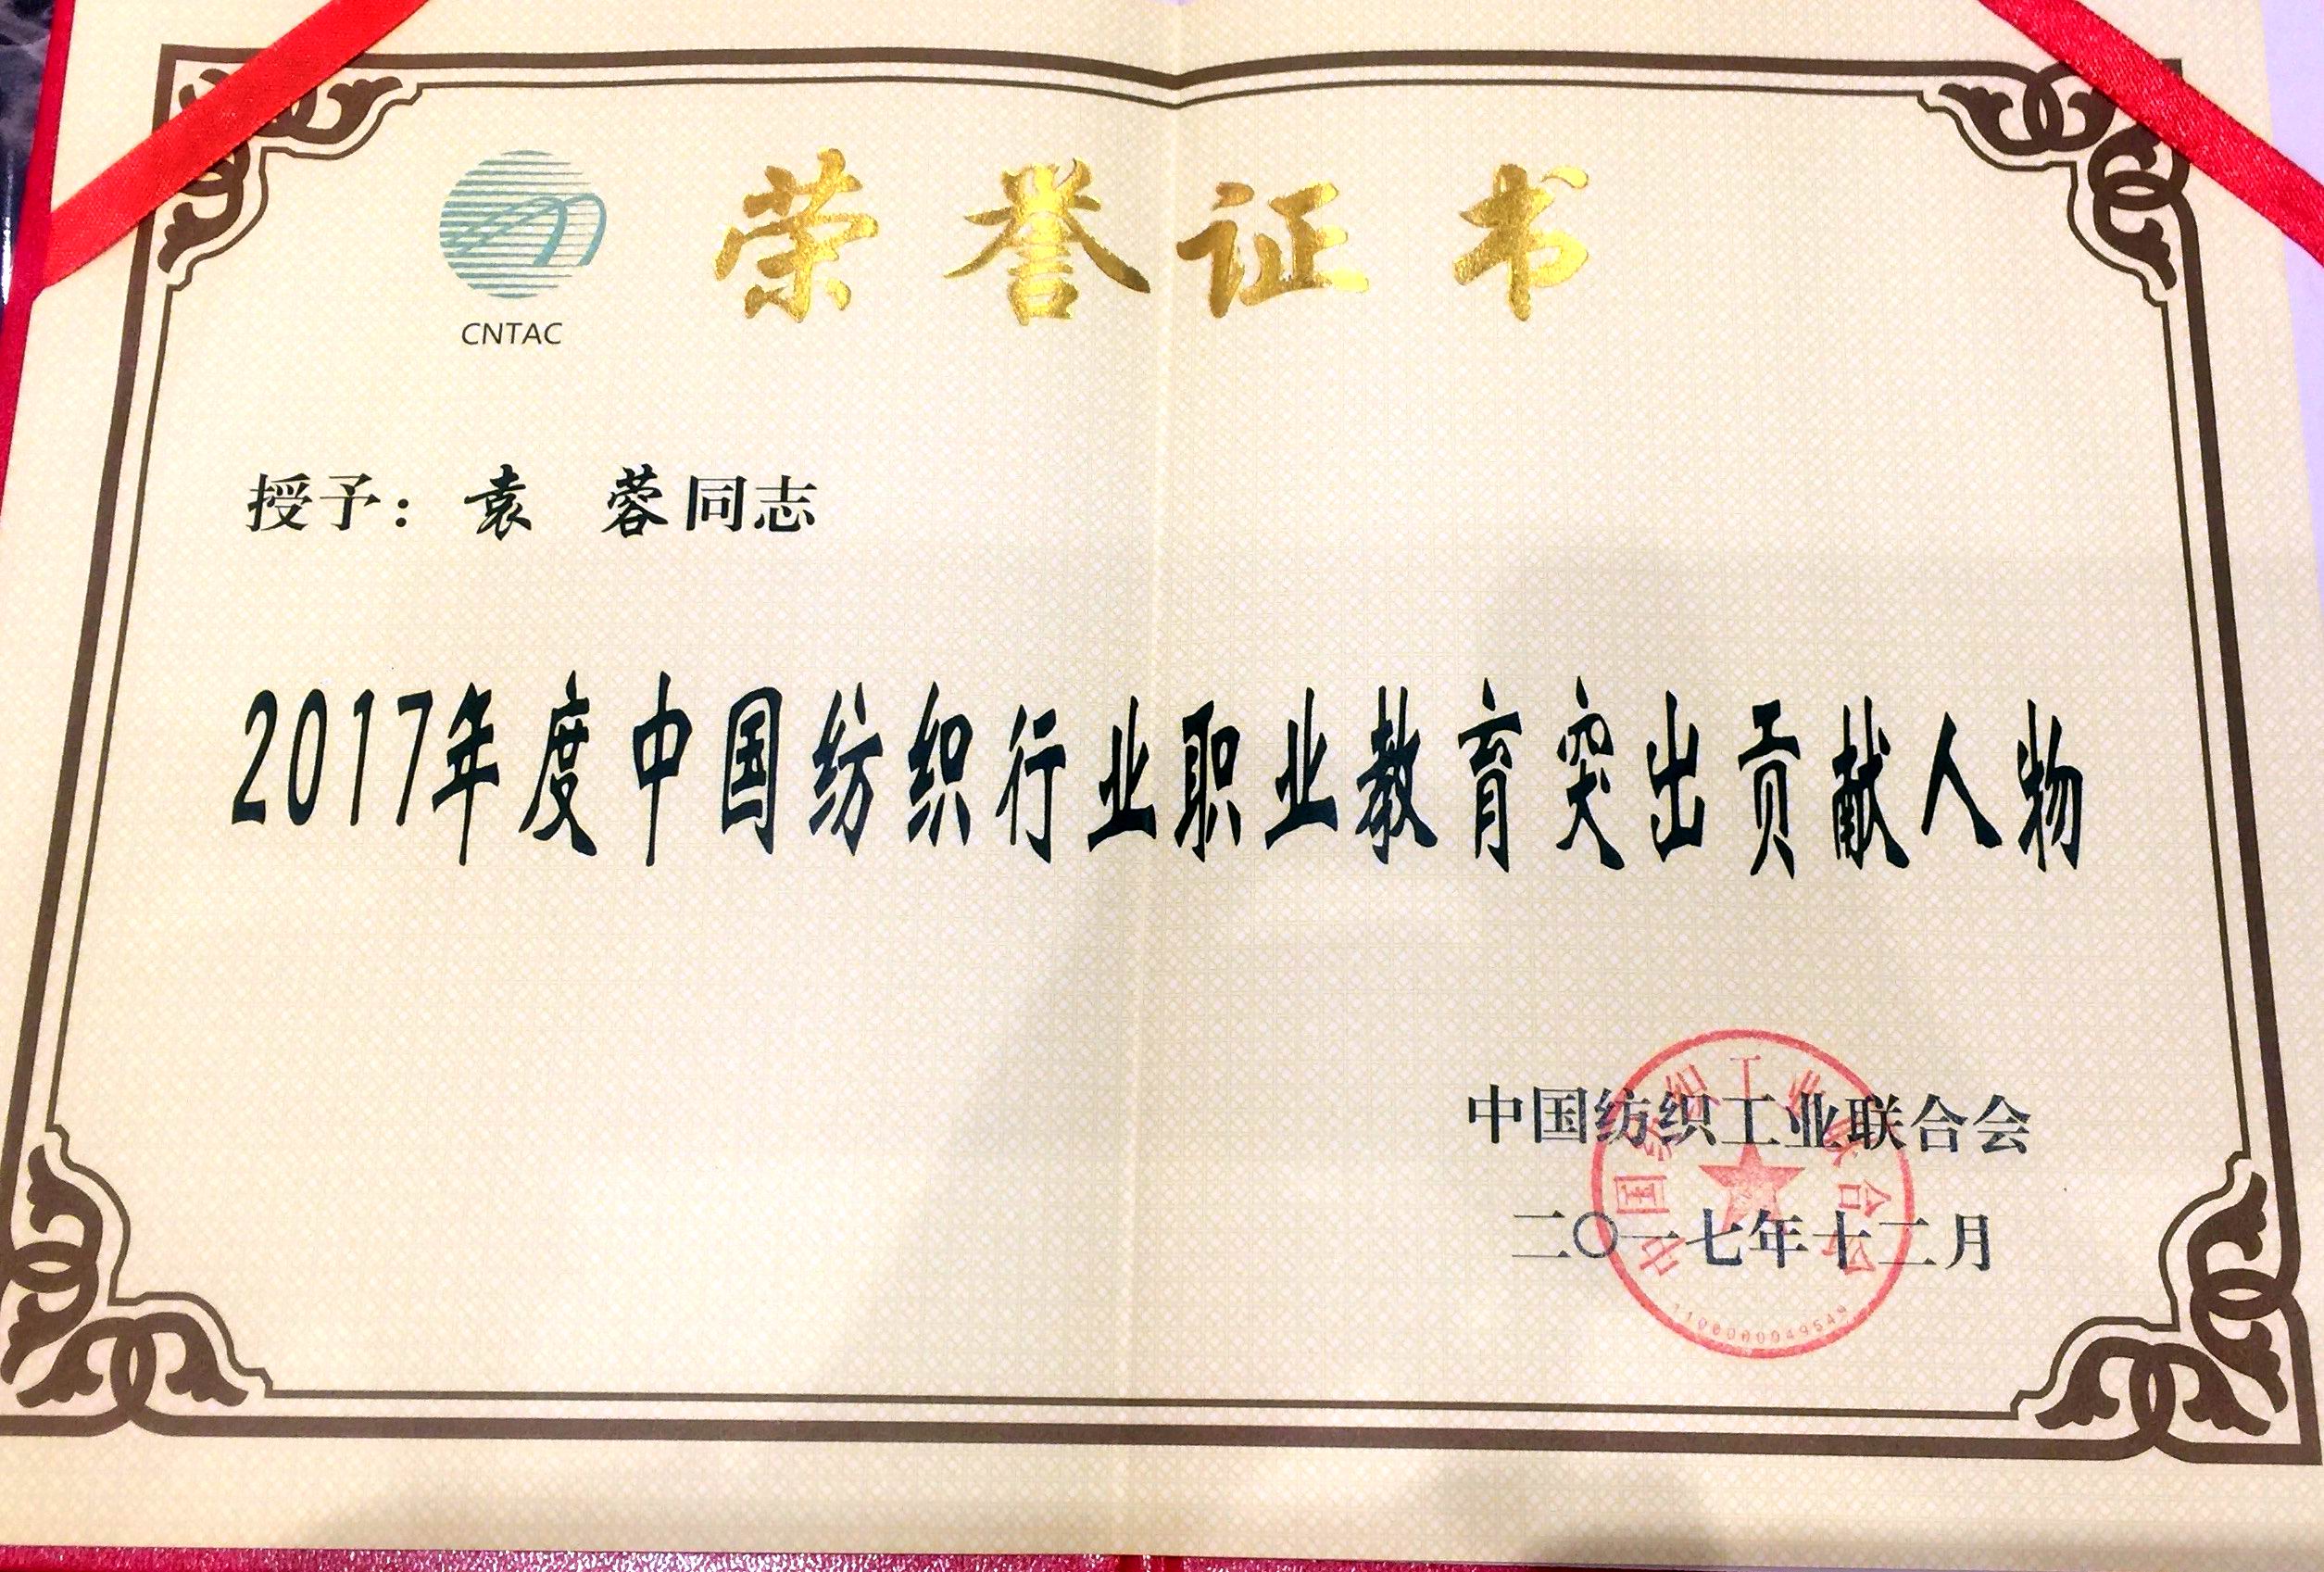 荣誉证书
CNTAC
授予：袁 蓉同志
2017年度中国纺织行业职业教育突出贡献人物
中国纺织工业联合会
二〇一七年十二月
中国纺织工业联合会